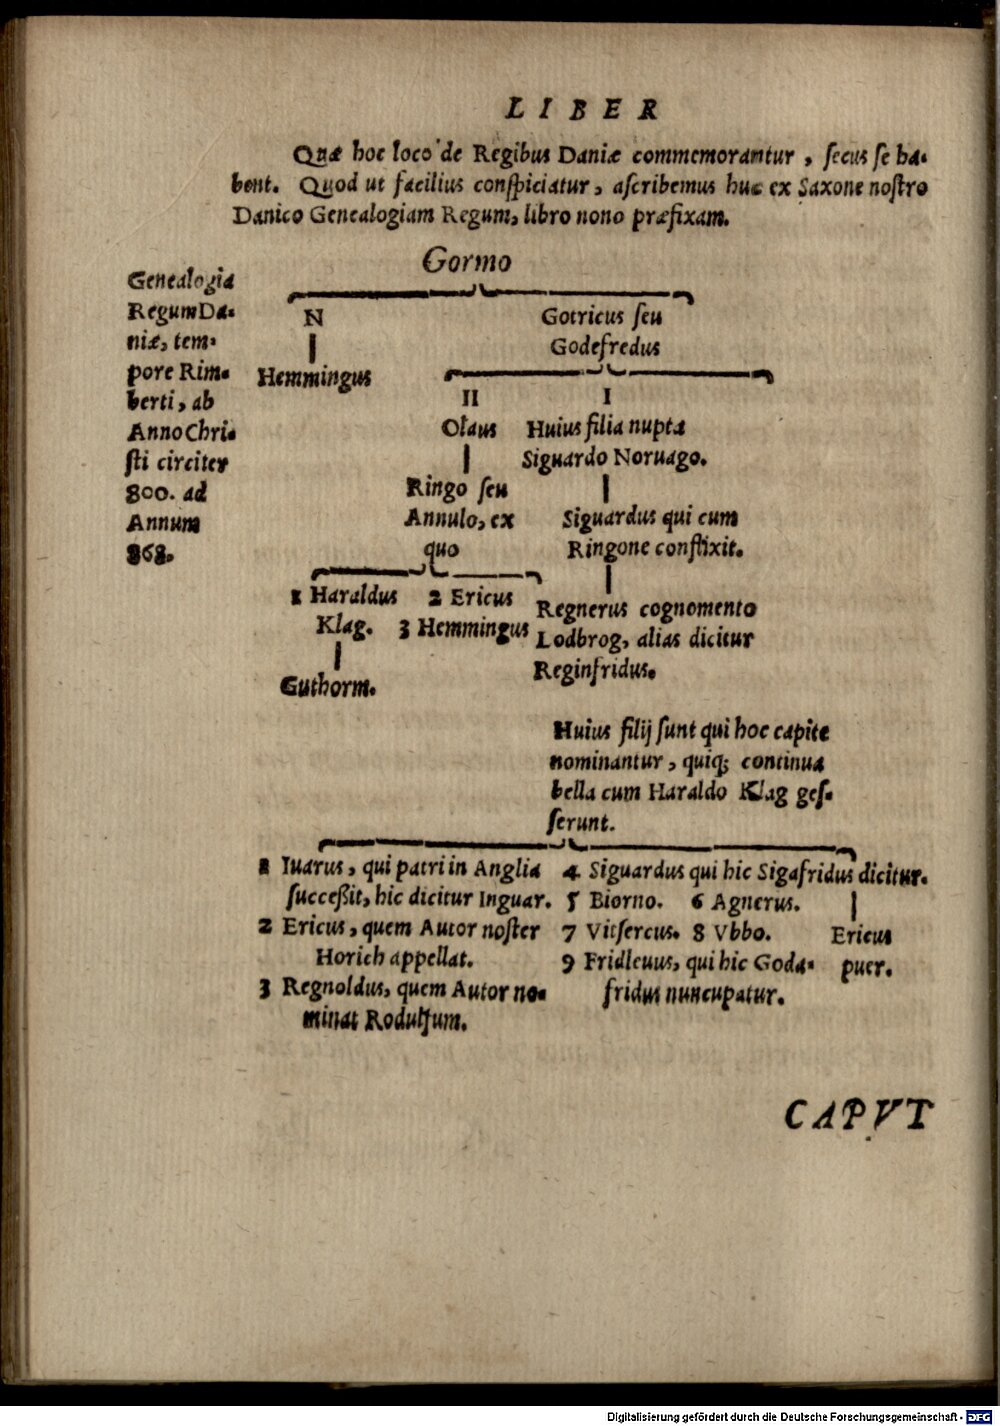 LIBER
Quæ hoc loco de Regibus Daniæ commemorantur, secus se ha-
bent. Quod ut facilius conspiciatur, ascribemus huc ex Saxone nostro
Danico Genealogiam Regum, libro nono præfixam.
Genealogia
Regum Da-
niæ, tem-
pore Rim-
berti, ab
Anno Chri-
sti circiter
800. ad
Annum
868.
Gormo
N
Hemmingus
Gotricus seu
Godefredus
II
Olaus
Ringo seu
Annulo, ex
quo
I
Huius filia nupta
Siguardo Noruago.
Siguardus qui cum
Ringone conflixit.
1 Haraldus
Klag.
Guthorm.
2 Ericus
3 Hemmingus
Regnerus cognomento
Lodbrog, alias dicitur
Reginfridus.
Huius filij sunt qui hoc capite
nominantur, quiq; continua
bella cum Haraldo Klag ges-
serunt.
1 Iuarus, qui patri in Anglia
successit, hic dicitur Inguar.
2 Ericus, quem Autor noster
Horich appellat.
3 Regnoldus, quem Autor no-
minat Rodulfum.
4 Siguardus qui hic Sigafridus dicitur.
5 Biorno. 6 Agnerus.
7 Vitsercus. 8 Vbbo.
9 Fridleuus, qui hic Goda-
fridus nuncupatur.
Ericus
puer.
CAPVT
Digitalisierung gefördert durch die Deutsche Forschungsgemeinschaft - DFG